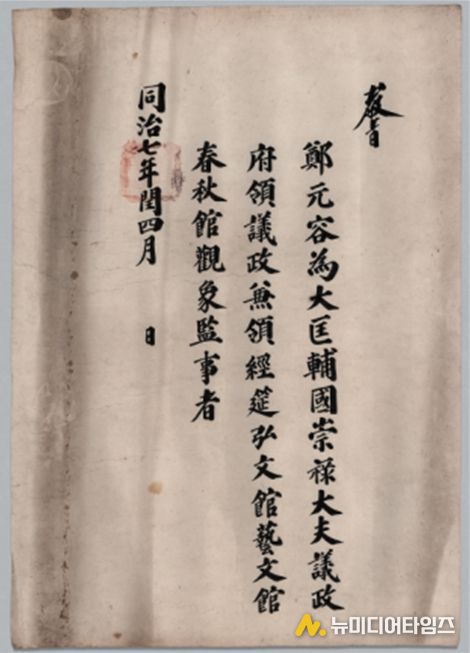 敎旨
鄭元容爲大匡輔國崇祿大夫議政
府領議政兼領經筵弘文館藝文館
春秋館觀象監事者
同治七年閏四月 日
뉴미디어타임즈